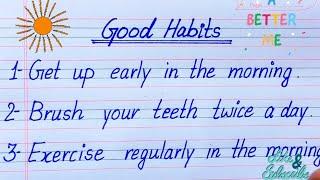 A
BETTER
ME
Good Habits
1- Get up early in the morning.
2- Brush your teeth twice a day.
3- Exercise regularly in the morning
&
Subscribe